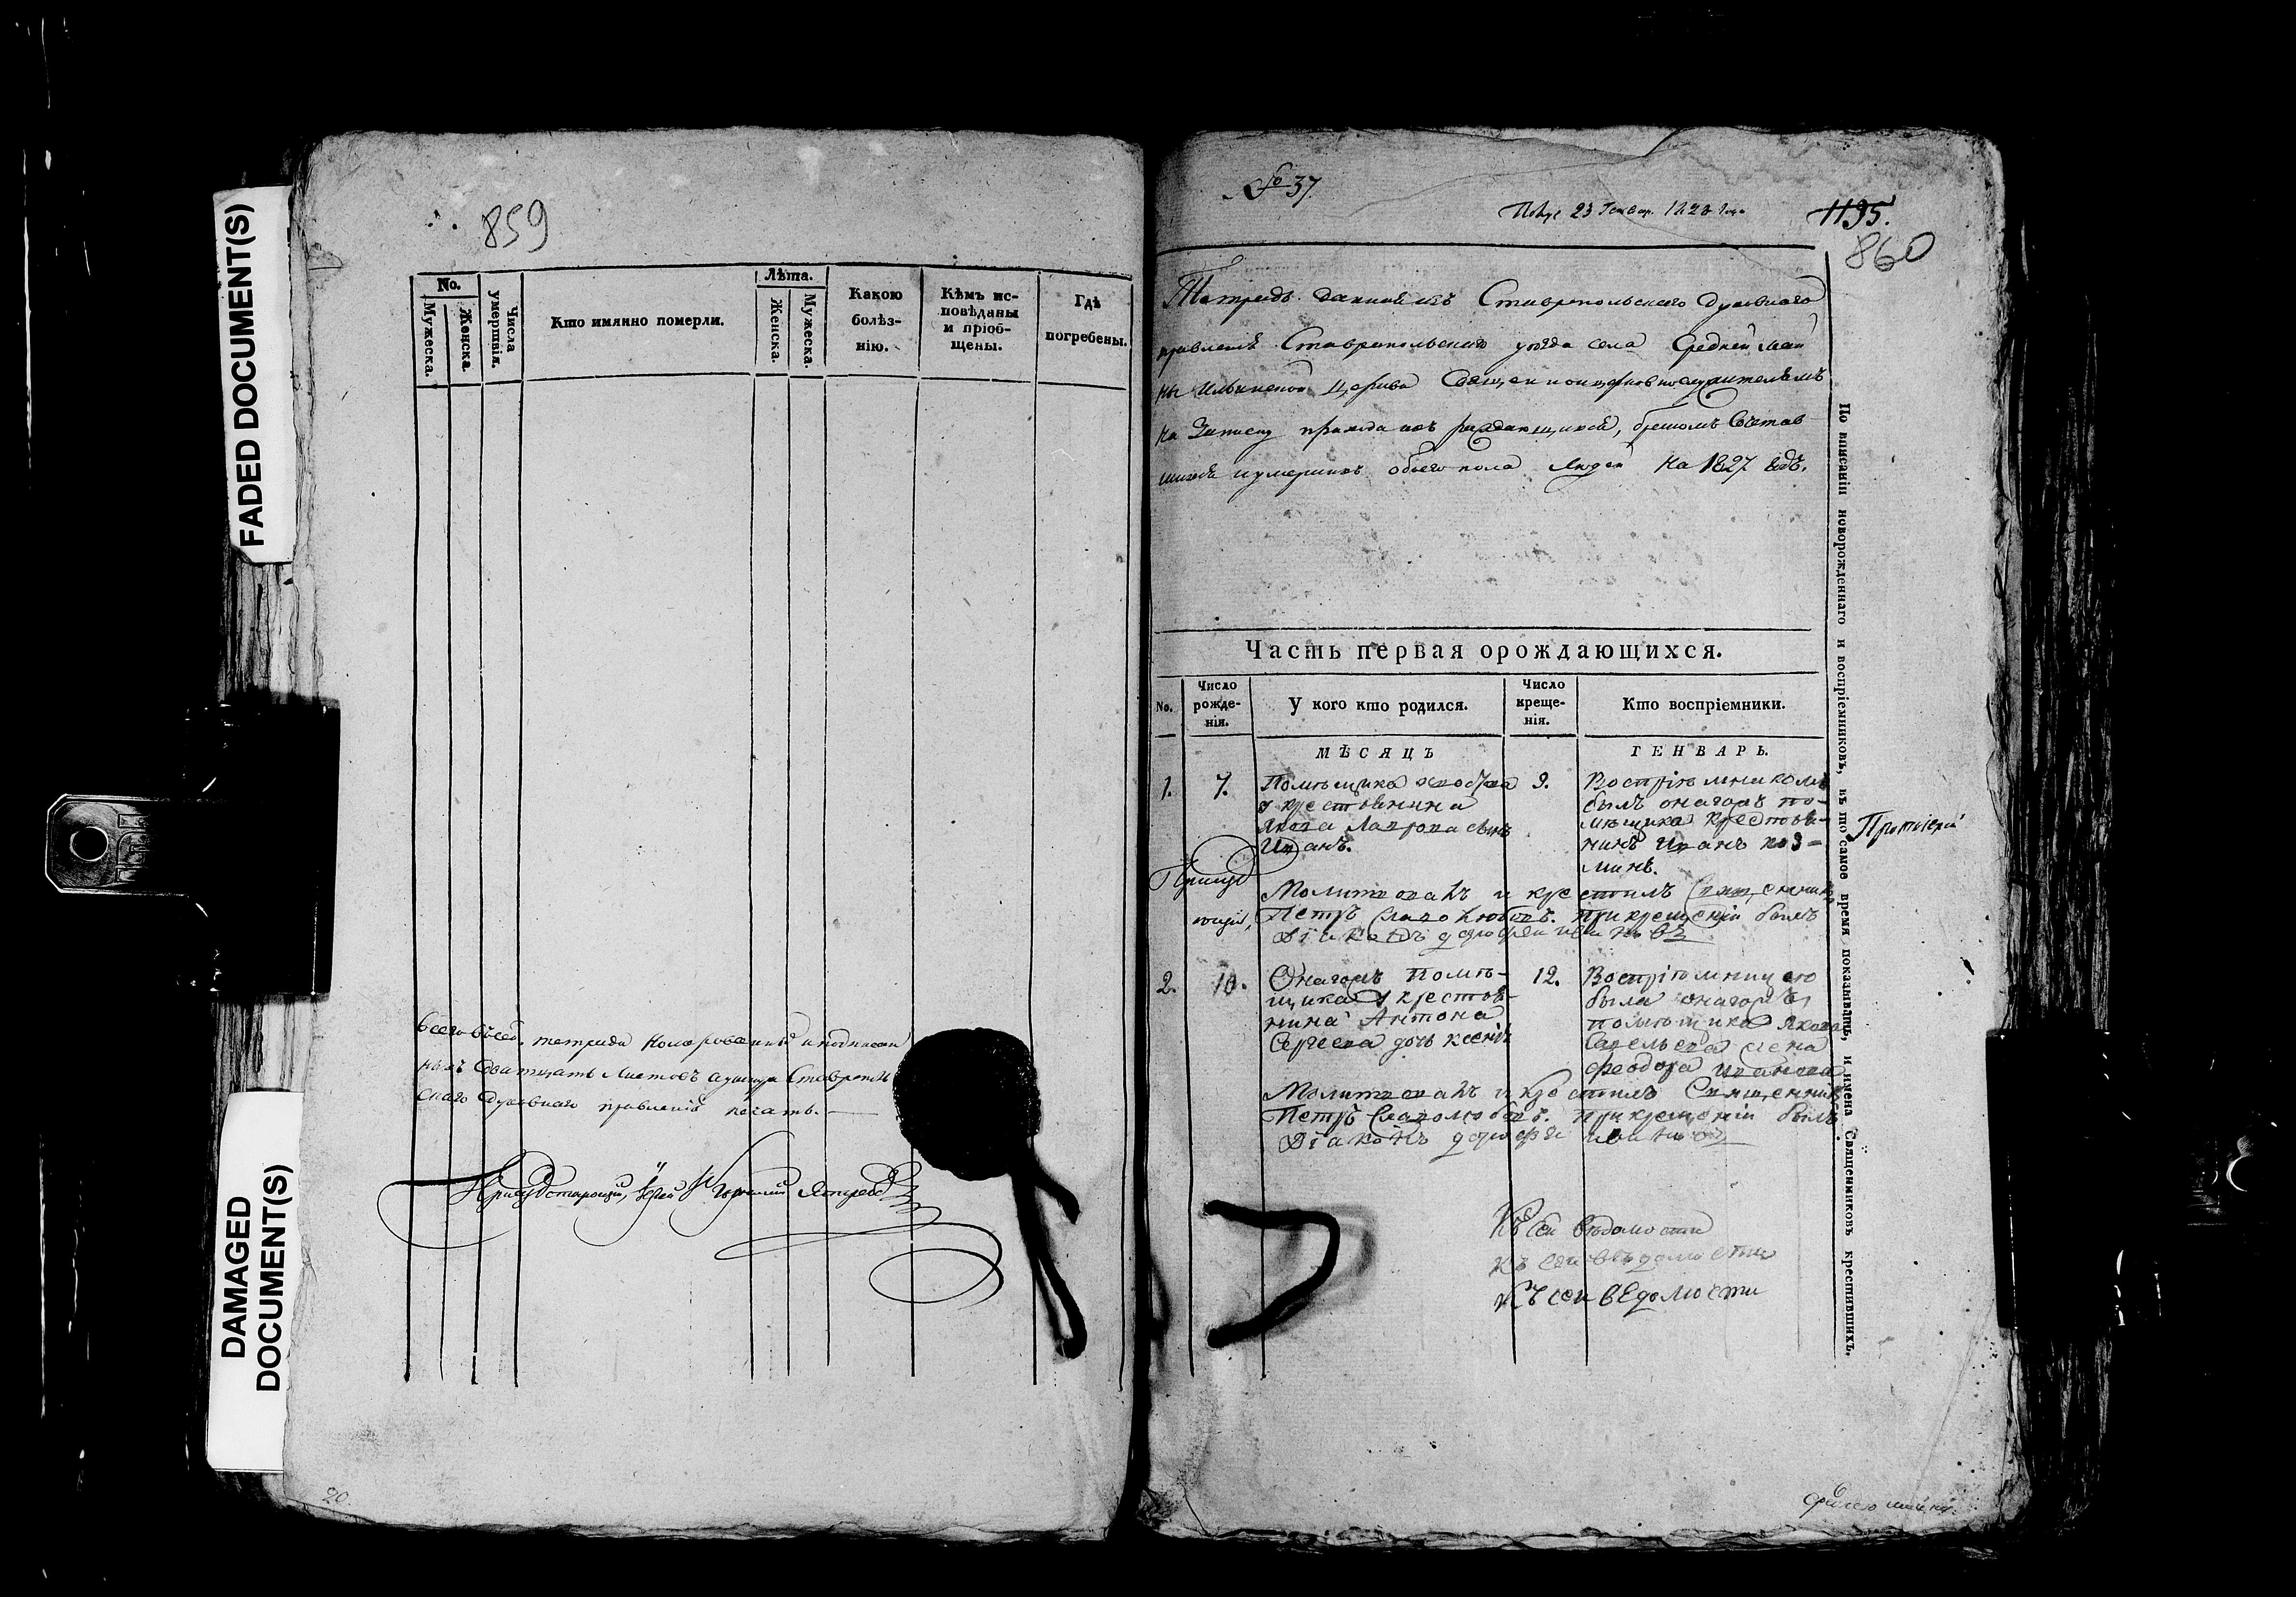 FADED DOCUMENT(S)
DAMAGED
DOCUMENT(S)
859
No.
Мужеска.
Женска.
Числа
умертвія.
Кто имянно померли.
Лѣта.
Женска.
Мужеска.
Какою
болѣз-
нію.
Кѣмъ ис-
повѣданы
и пріоб-
щены.
Гдѣ
погребены.
Всего въ сей тетради
листовъ
Духовнаго правленія печать.
Присудствующій, Іерей
20.
№ 37.
23 Генвар. 1828 года
1195.
860
Тетрадь данная изъ Ставропольскаго Духовнаго
правленія Ставропольскаго уѣзда села Средней Май
ны Ильинской Церкви Священноцерковнослужителямъ
на Записку прихода ихъ раждающихся, бракомъ Сочетав
шихся и умершихъ обоего пола людей на 1827 годъ.
Часть первая орождающихся.
No.
Число
рожде-
нія.
У кого кто родился.
Число
креще-
нія.
Кто воспріемники.
МѢСЯЦЪ
ГЕНВАРЬ.
1.
7.
Помѣщика
у крестьянина
Якова Лаврова сынъ
Иванъ.
9.
Воспріѣмникомъ
былъ онагожъ по-
мѣщика крестьян-
нинъ Иванъ Коз-
минъ.
Протоіерей
Присуд
Молитвовалъ и крестилъ Священникъ
Петръ Славолюбовъ. при крещеніи былъ
Діаконъ
2.
10.
Онагожъ помѣ-
щика у крестья-
нина Антона
Сергеева дочь Ксенія
12.
Воспріѣмницею
была онагожъ
помѣщика Якова
Савельева жена
Феодора Иванова
Молитвовалъ и крестилъ Священникъ
Петръ Славолюбовъ. при крещеніи былъ
Діаконъ
Къ сей вѣдомости
Къ сей вѣдомости
Къ сей ведомости
По вписаніи новорожденнаго и воспріемниковъ, въ то самое время показывать, и имена Священниковъ крестившихъ,